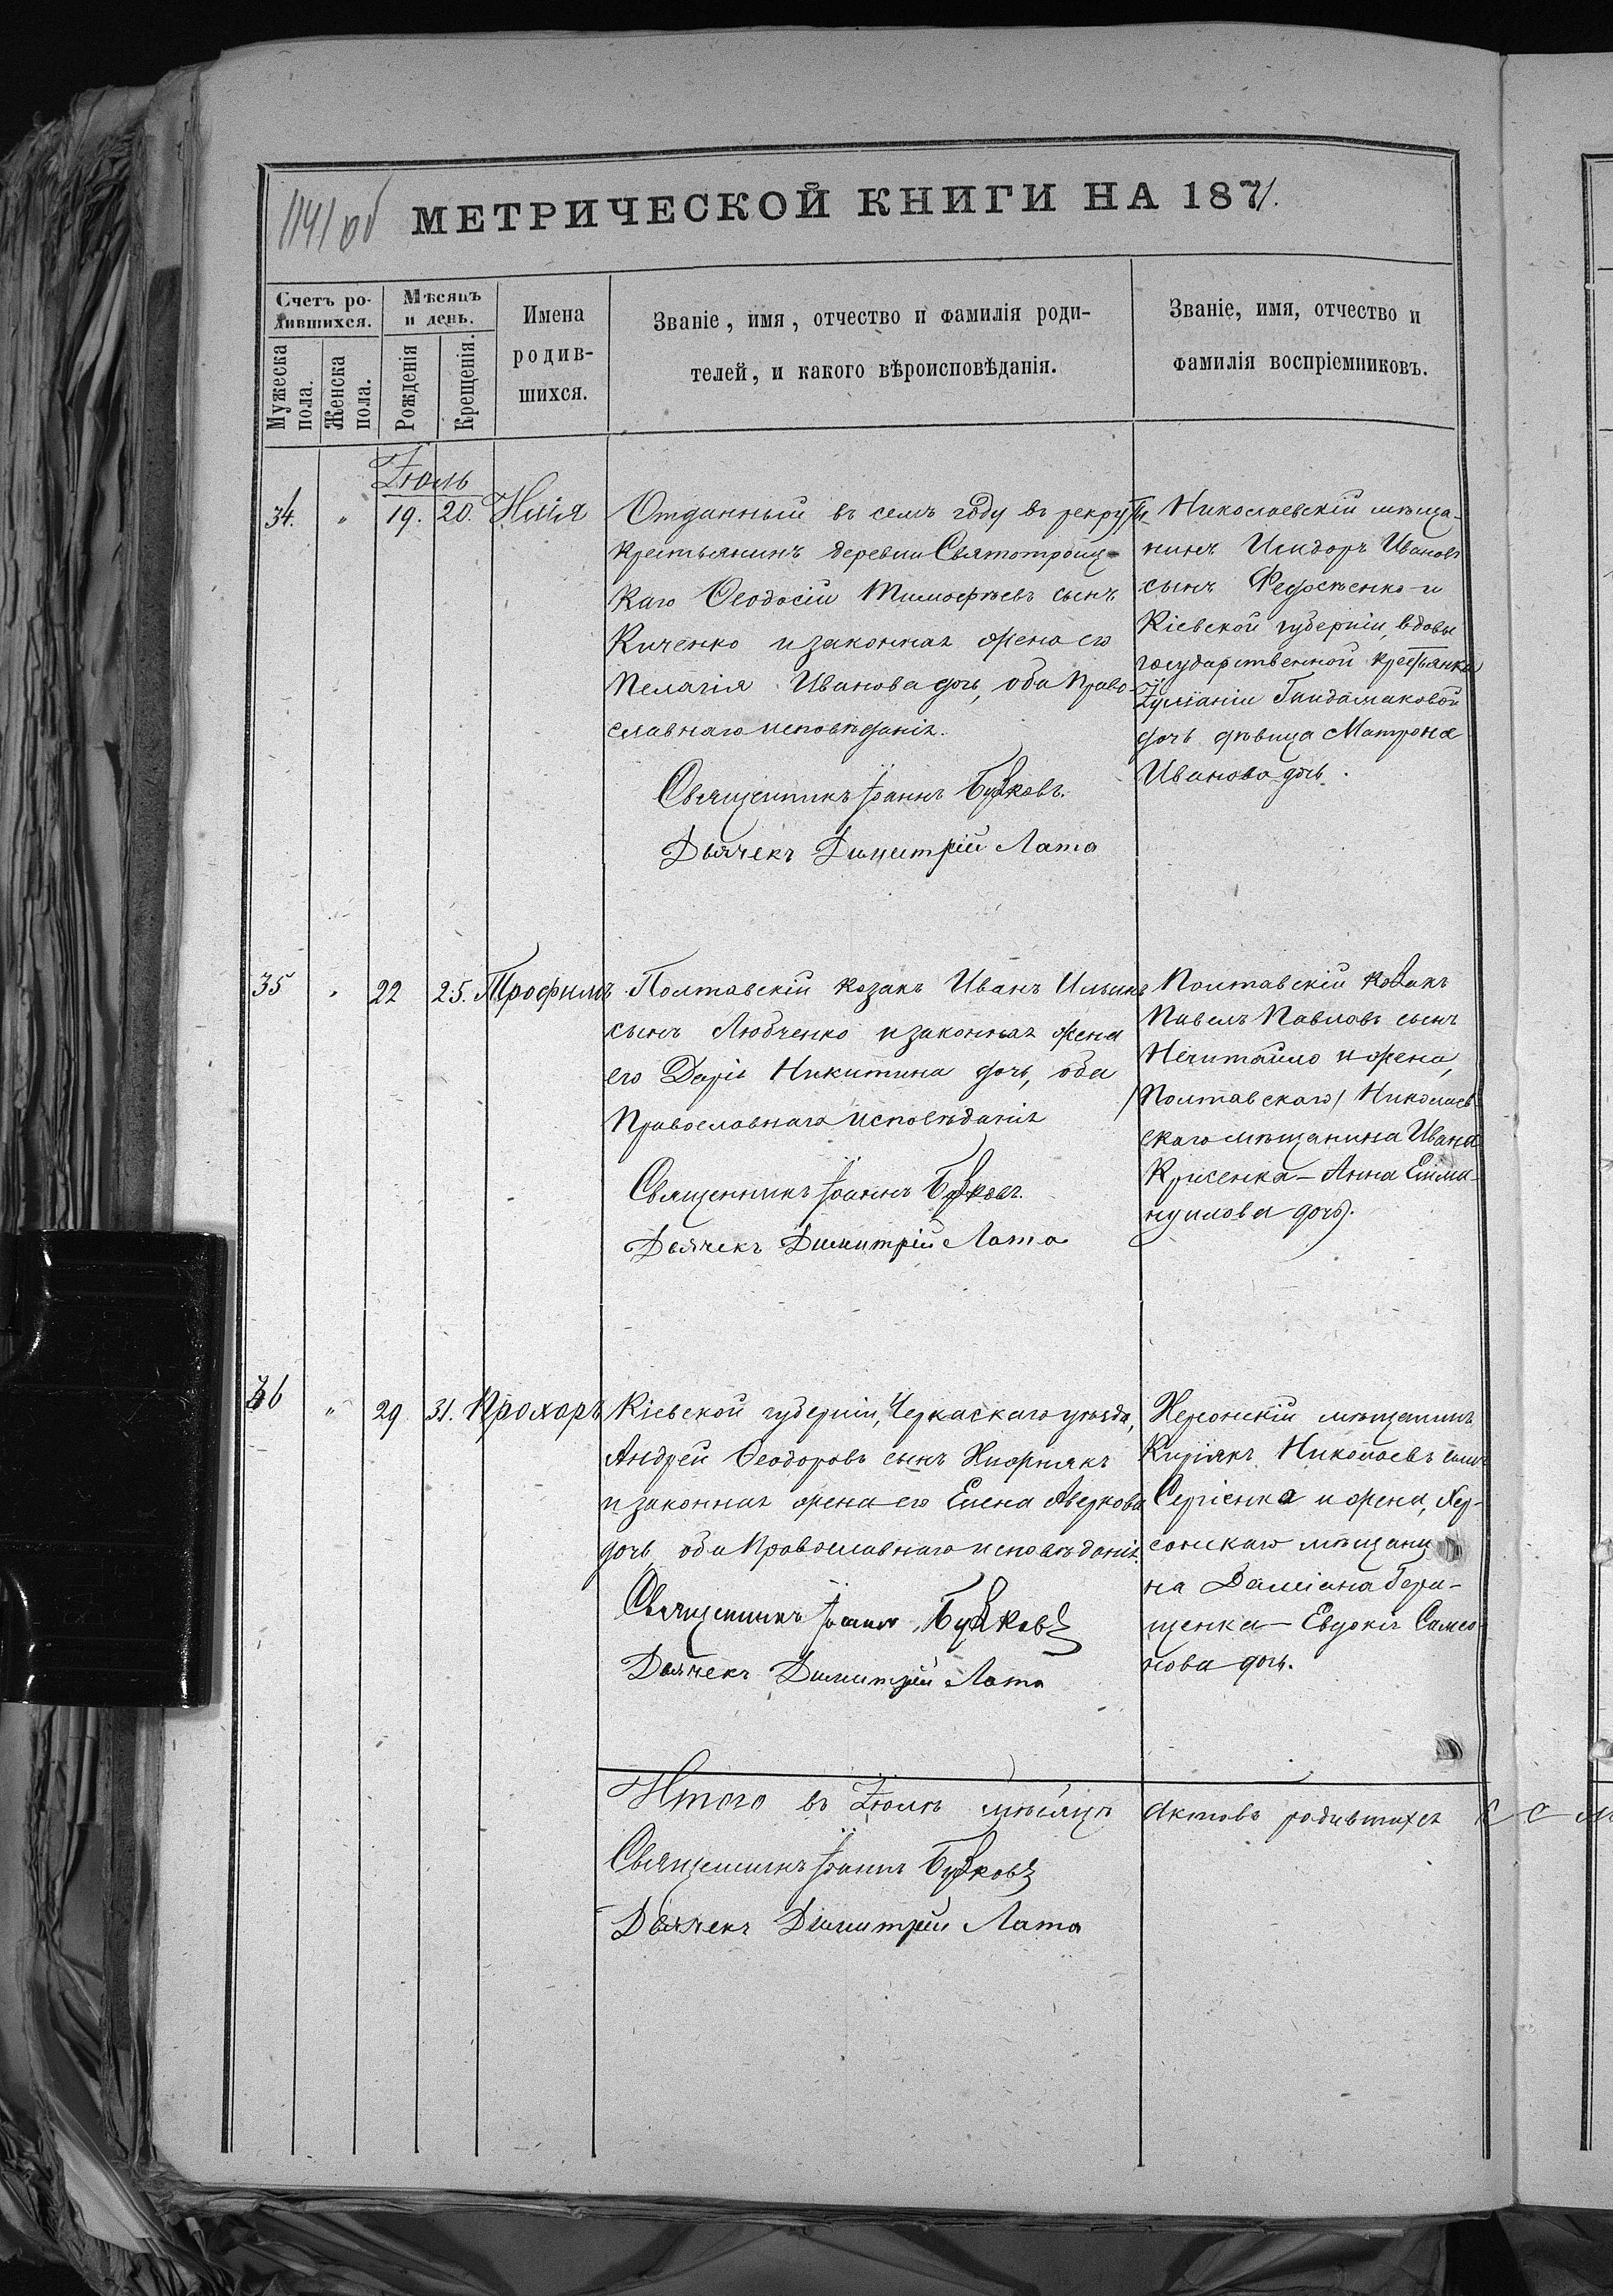 1141 об
МЕТРИЧЕСКОЙ КНИГИ НА 1871.
Счетъ ро-
дившихся.
Мужеска пола.
Женска пола.
Мѣсяцъ
и день.
Рожденія
Крещенія.
Имена
родив-
шихся.
Званіе, имя, отчество и фамилія роди-
телей, и какого вѣроисповѣданія.
Званіе, имя, отчество и
фамилія воспріемниковъ.
Іюль
34. " 19. 20. Илія
Отданный въ семъ году въ рекруты
крестьянинъ деревни Святотроиц-
каго Ѳеодосій Тимофѣевъ сынъ
Киченко и законная жена его
Пелагія Иванова дочь, оба Право-
славнаго исповѣданія.
Священникъ Іоаннъ Бужковъ.
Дьячекъ Димитрій Лата
Николаевскій мѣща-
нинъ Исидоръ Ивановъ
сынъ Федосѣенко и
Кіевской губерніи, вдовы
государственной крестьянки
Іуліаніи Гайдамаковой
дочь дѣвица Матрона
Иванова дочь.
35 " 22 25. Трофимъ
Полтавскій козакъ Иванъ Ильинъ
сынъ Любченко и законная жена
его Дарія Никитина дочь, оба
Православнаго исповѣданія
Священникъ Іоаннъ
Дьячекъ Димитрій Лата
Полтавскій козакъ
Павелъ Павловъ сынъ
Нечитайло и жена,
/Полтавскаго/ Николаев-
скаго мѣщанина Ивана
Крисенка – Анна Емма-
нуилова дочь.
36 " 29 31. Прохоръ
Кіевской губерніи, Черкаскаго уѣзда,
Андрей Ѳеодоровъ сынъ
и законная жена его Елена Аверкова
дочь оба Православнаго исповѣданія.
Священникъ Іоаннъ
Дьячекъ Димитрій Лата
Херсонскій мѣщанинъ
Киріякъ Николаевъ сынъ
Сергіенко и жена, Хер-
сонскаго мѣщани
на Даміана Гера-
щенка – Евдокія Симео-
нова дочь.
Итого въ Іюлѣ мѣсяцѣ актовъ родившихся
Священникъ Іоаннъ
Дьячекъ Димитрій Лата